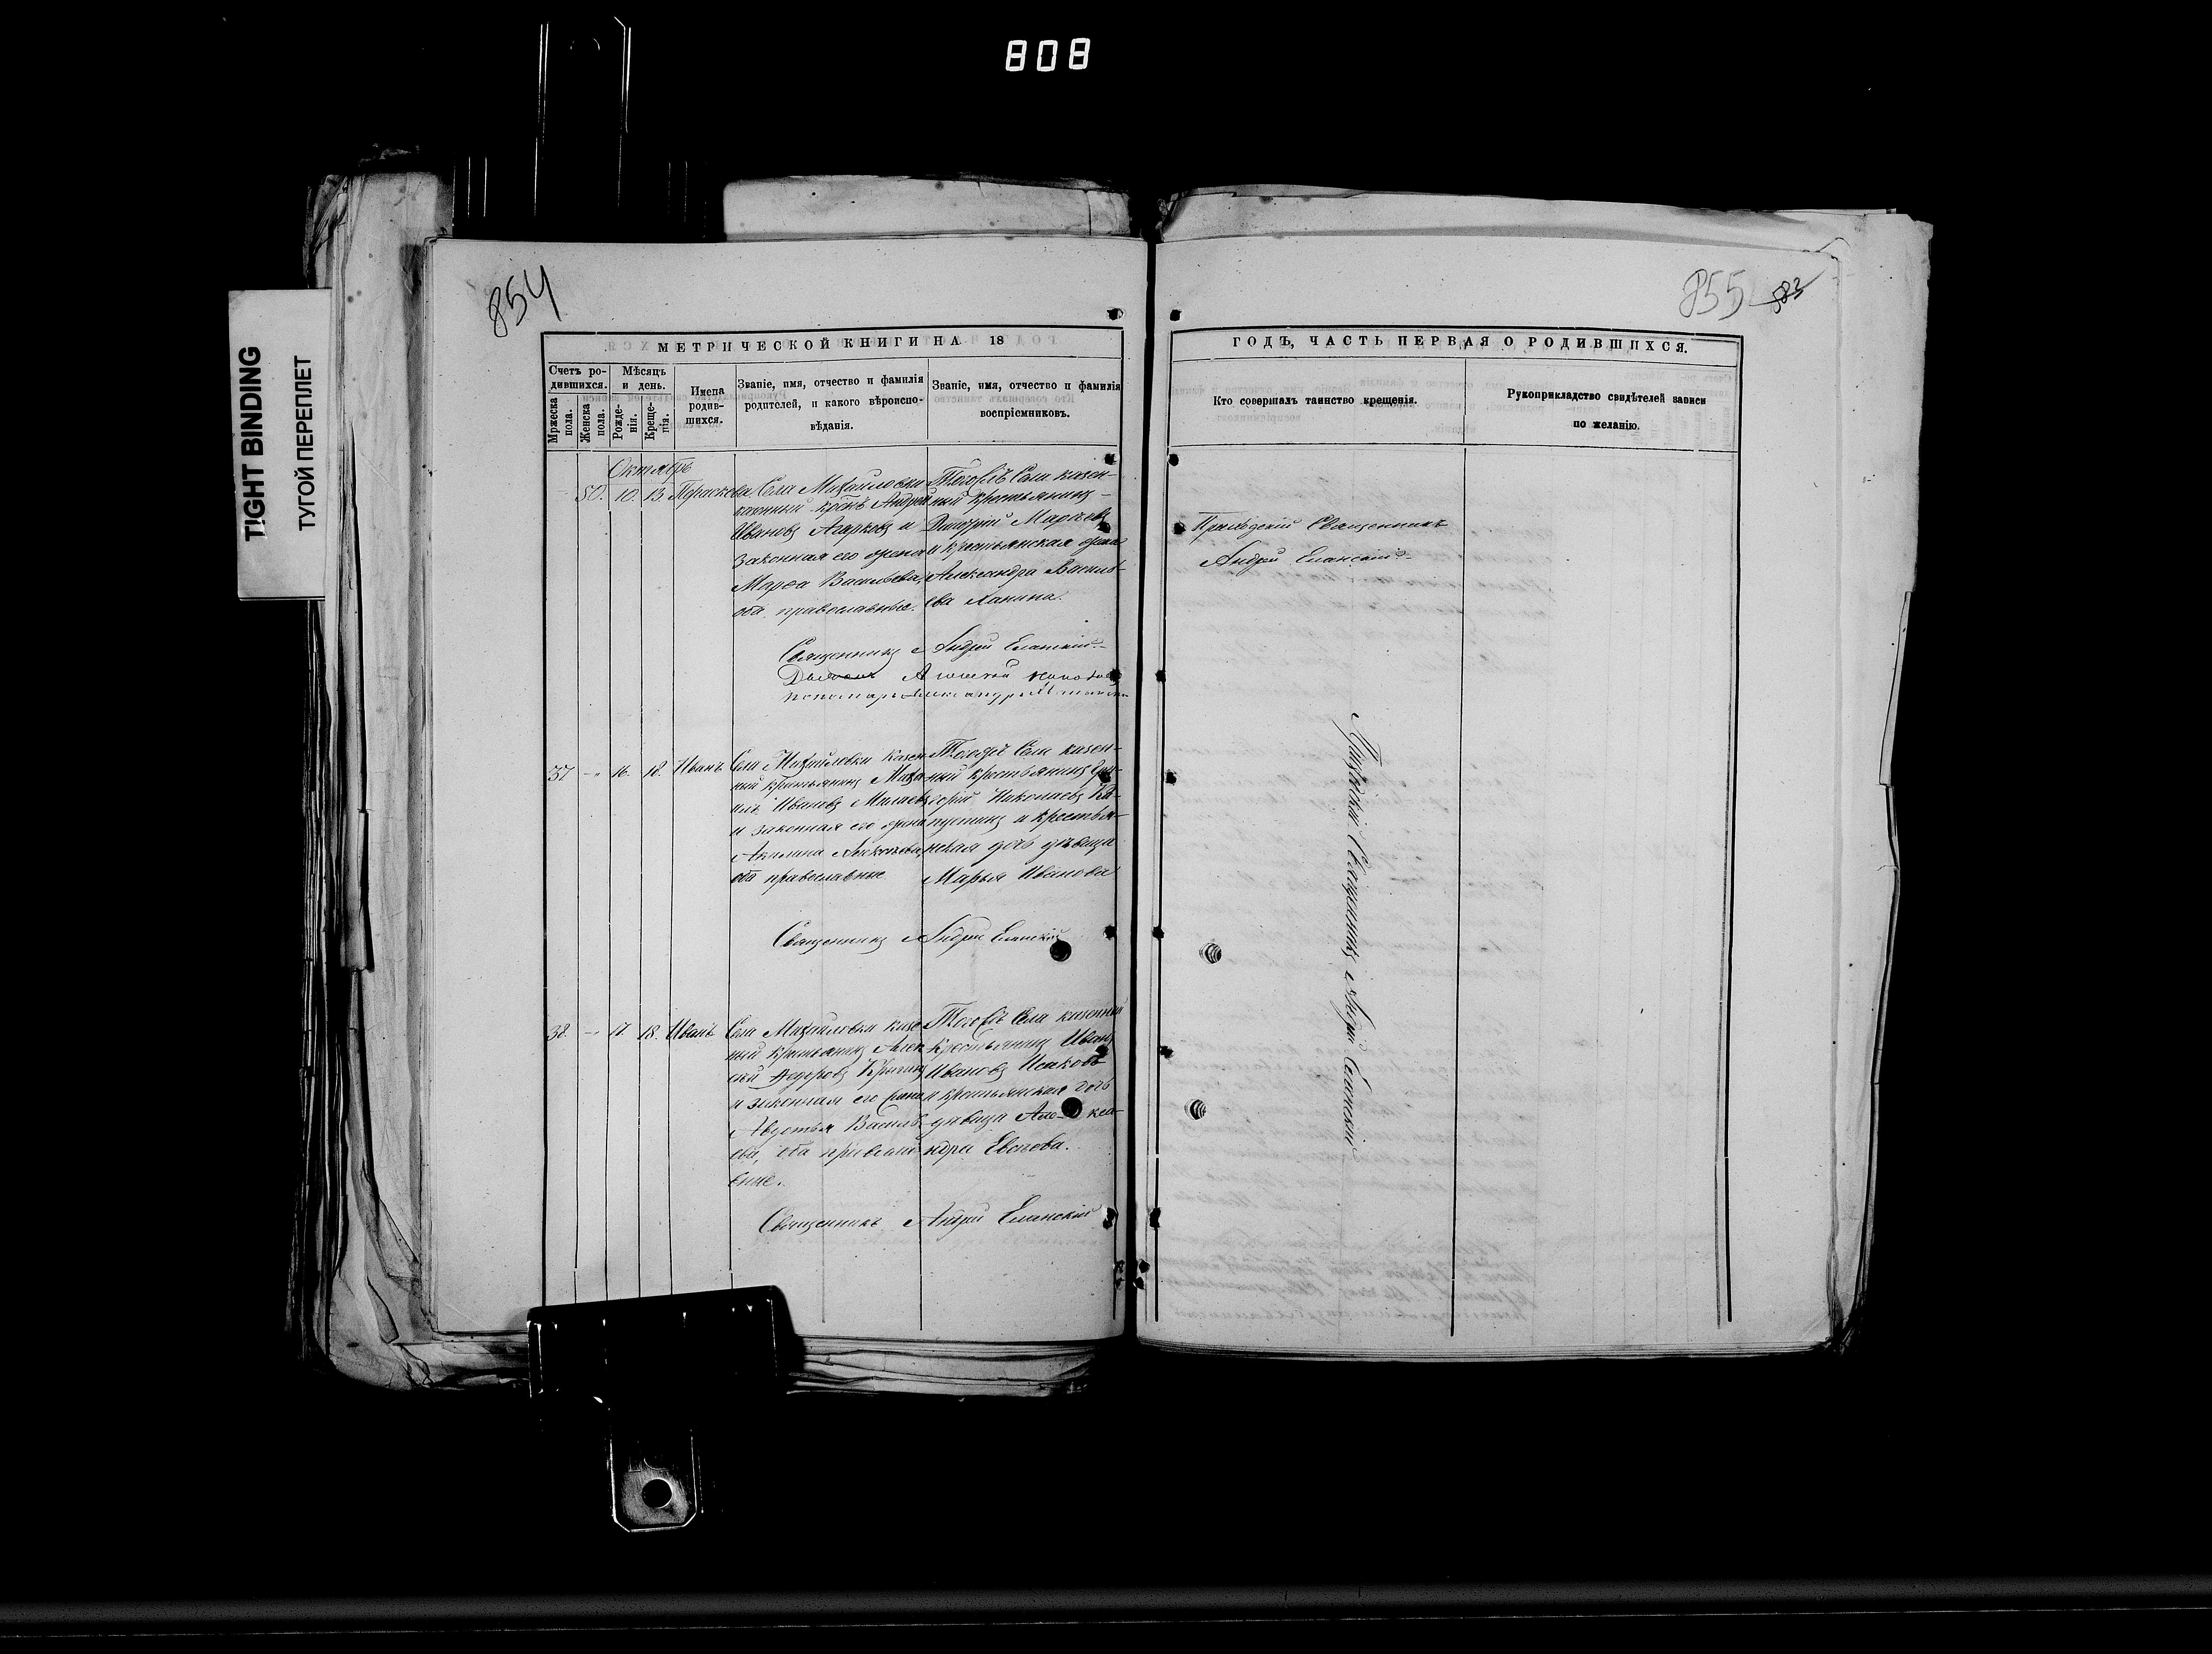 808
TIGHT BINDING
ТУГОЙ ПЕРЕПЛЕТ
854
МЕТРИЧЕСКОЙ КНИГИ НА 18
Счетъ ро-
дившихся.
Мужеска
пола.
Женска
пола.
Мѣсяцъ
и день.
Рожде-
нія.
Креще-
нія.
Имена
родив-
шихся.
Званіе, имя, отчество и фамилія
родителей, и какого вѣроиспо-
вѣданія.
Званіе, имя, отчество и фамилія
воспріемниковъ.
Октябрь
50. 10. 13. Параскева
Села Михайловки
казенный крснъ Андрей
Ивановъ Агарковъ и
законная его жена
Марѳа Васильева,
оба православные.
Тогожъ Села казен-
ный крестьянинъ
Димитрій
и крестьянская жена
Александра Василь-
ева Ханина.
Священникъ Андрей Еланскій
37 - 16. 18. Иванъ
Села Михайловки казен-
ный крестьянинъ Миха-
илъ Ивановъ
и законная его жена
Акилина
оба православные
Тогожъ Села казен-
ный крестьянинъ Гри-
горій Николаевъ Ка-
пустинъ и крестья-
нская дочь дѣвица
Марья Иванова
Священникъ Андрей Еланскій
38. - 17. 18. Иванъ
Села Михайловки казе-
ный крестьянинъ Алек-
сѣй Ѳедоровъ
и законная его жена
Авдотья Василь-
ева, оба православ-
еные.
Тогожъ Села казенный
крестьянинъ Иванъ
Ивановъ Исаковъ
и крестьянская дочь
дѣвица Алекса-
ндра
Священникъ Андрей Еланскій
855 583
ГОДЪ, ЧАСТЬ ПЕРВАЯ О РОДИВШИХСЯ.
Кто совершалъ таинство крещенія.
Рукоприкладство свидѣтелей записи
по желанію.
Приходскій Священникъ
Андрей Еланскій
Приходскій Священникъ Андрей Еланскій